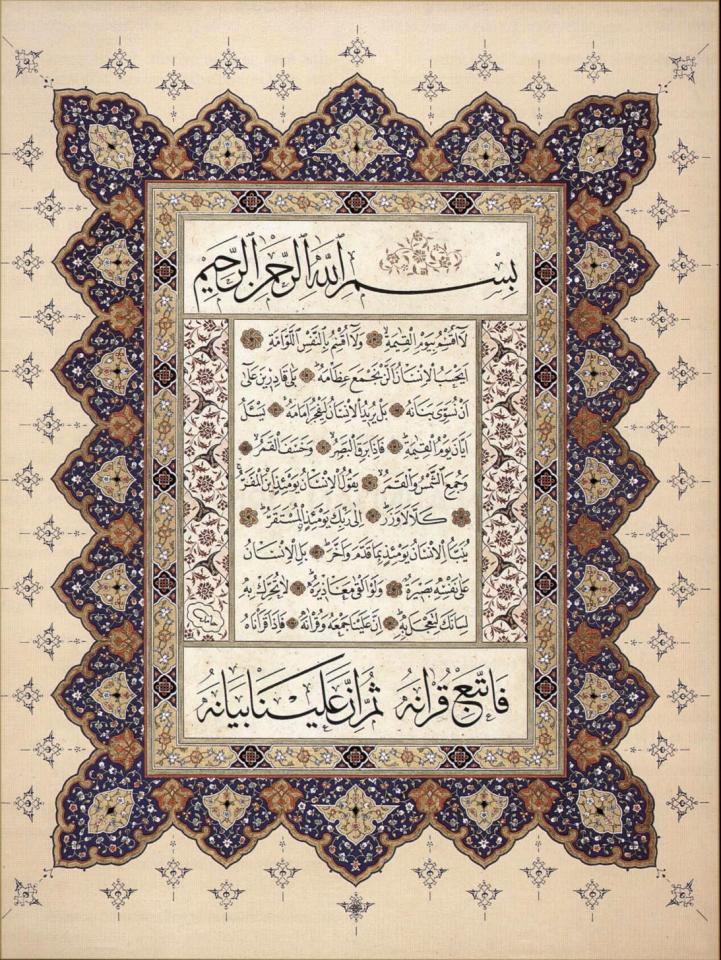 بسم الله الرحمن الرحيم
لَا أُقْسِمُ بِيَوْمِ الْقِيٰمَةِ وَلَا أُقْسِمُ بِالنَّفْسِ اللَّوَّامَةِ
اَيَحْسَبُ الْاِنْسَانُ اَلَّنْ نَجْمَعَ عِظَامَهُ بَلٰى قَادِرِينَ عَلٰى
اَنْ نُسَوِّىَ بَنَانَهُ بَلْ يُرِيدُ الْاِنْسَانُ لِيَفْجُرَ اَمَامَهُ يَسْـَٔلُ
اَيَّانَ يَوْمُ الْقِيٰمَةِ فَاِذَا بَرِقَ الْبَصَرُ وَخَسَفَ الْقَمَرُ
وَجُمِعَ الشَّمْسُ وَالْقَمَرُ يَقُولُ الْاِنْسَانُ يَوْمَئِذٍ اَيْنَ الْمَفَرُّ
كَلَّا لَا وَزَرَ اِلٰى رَبِّكَ يَوْمَئِذٍ الْمُسْتَقَرُّ
يُنَبَّؤُا الْاِنْسَانُ يَوْمَئِذٍ بِمَا قَدَّمَ وَاَخَّرَ بَلِ الْاِنْسَانُ
عَلٰى نَفْسِهٖ بَصِيرَةٌ وَلَوْ اَلْقٰى مَعَاذِيرَهُ لَا تُحَرِّكْ بِهٖ
لِسَانَكَ لِتَعْجَلَ بِهٖ اِنَّ عَلَيْنَا جَمْعَهُ وَقُرْاٰنَهُ فَاِذَا قَرَأْنَاهُ
فَاتَّبِعْ قُرْاٰنَهُ ثُمَّ اِنَّ عَلَيْنَا بَيَانَهُ